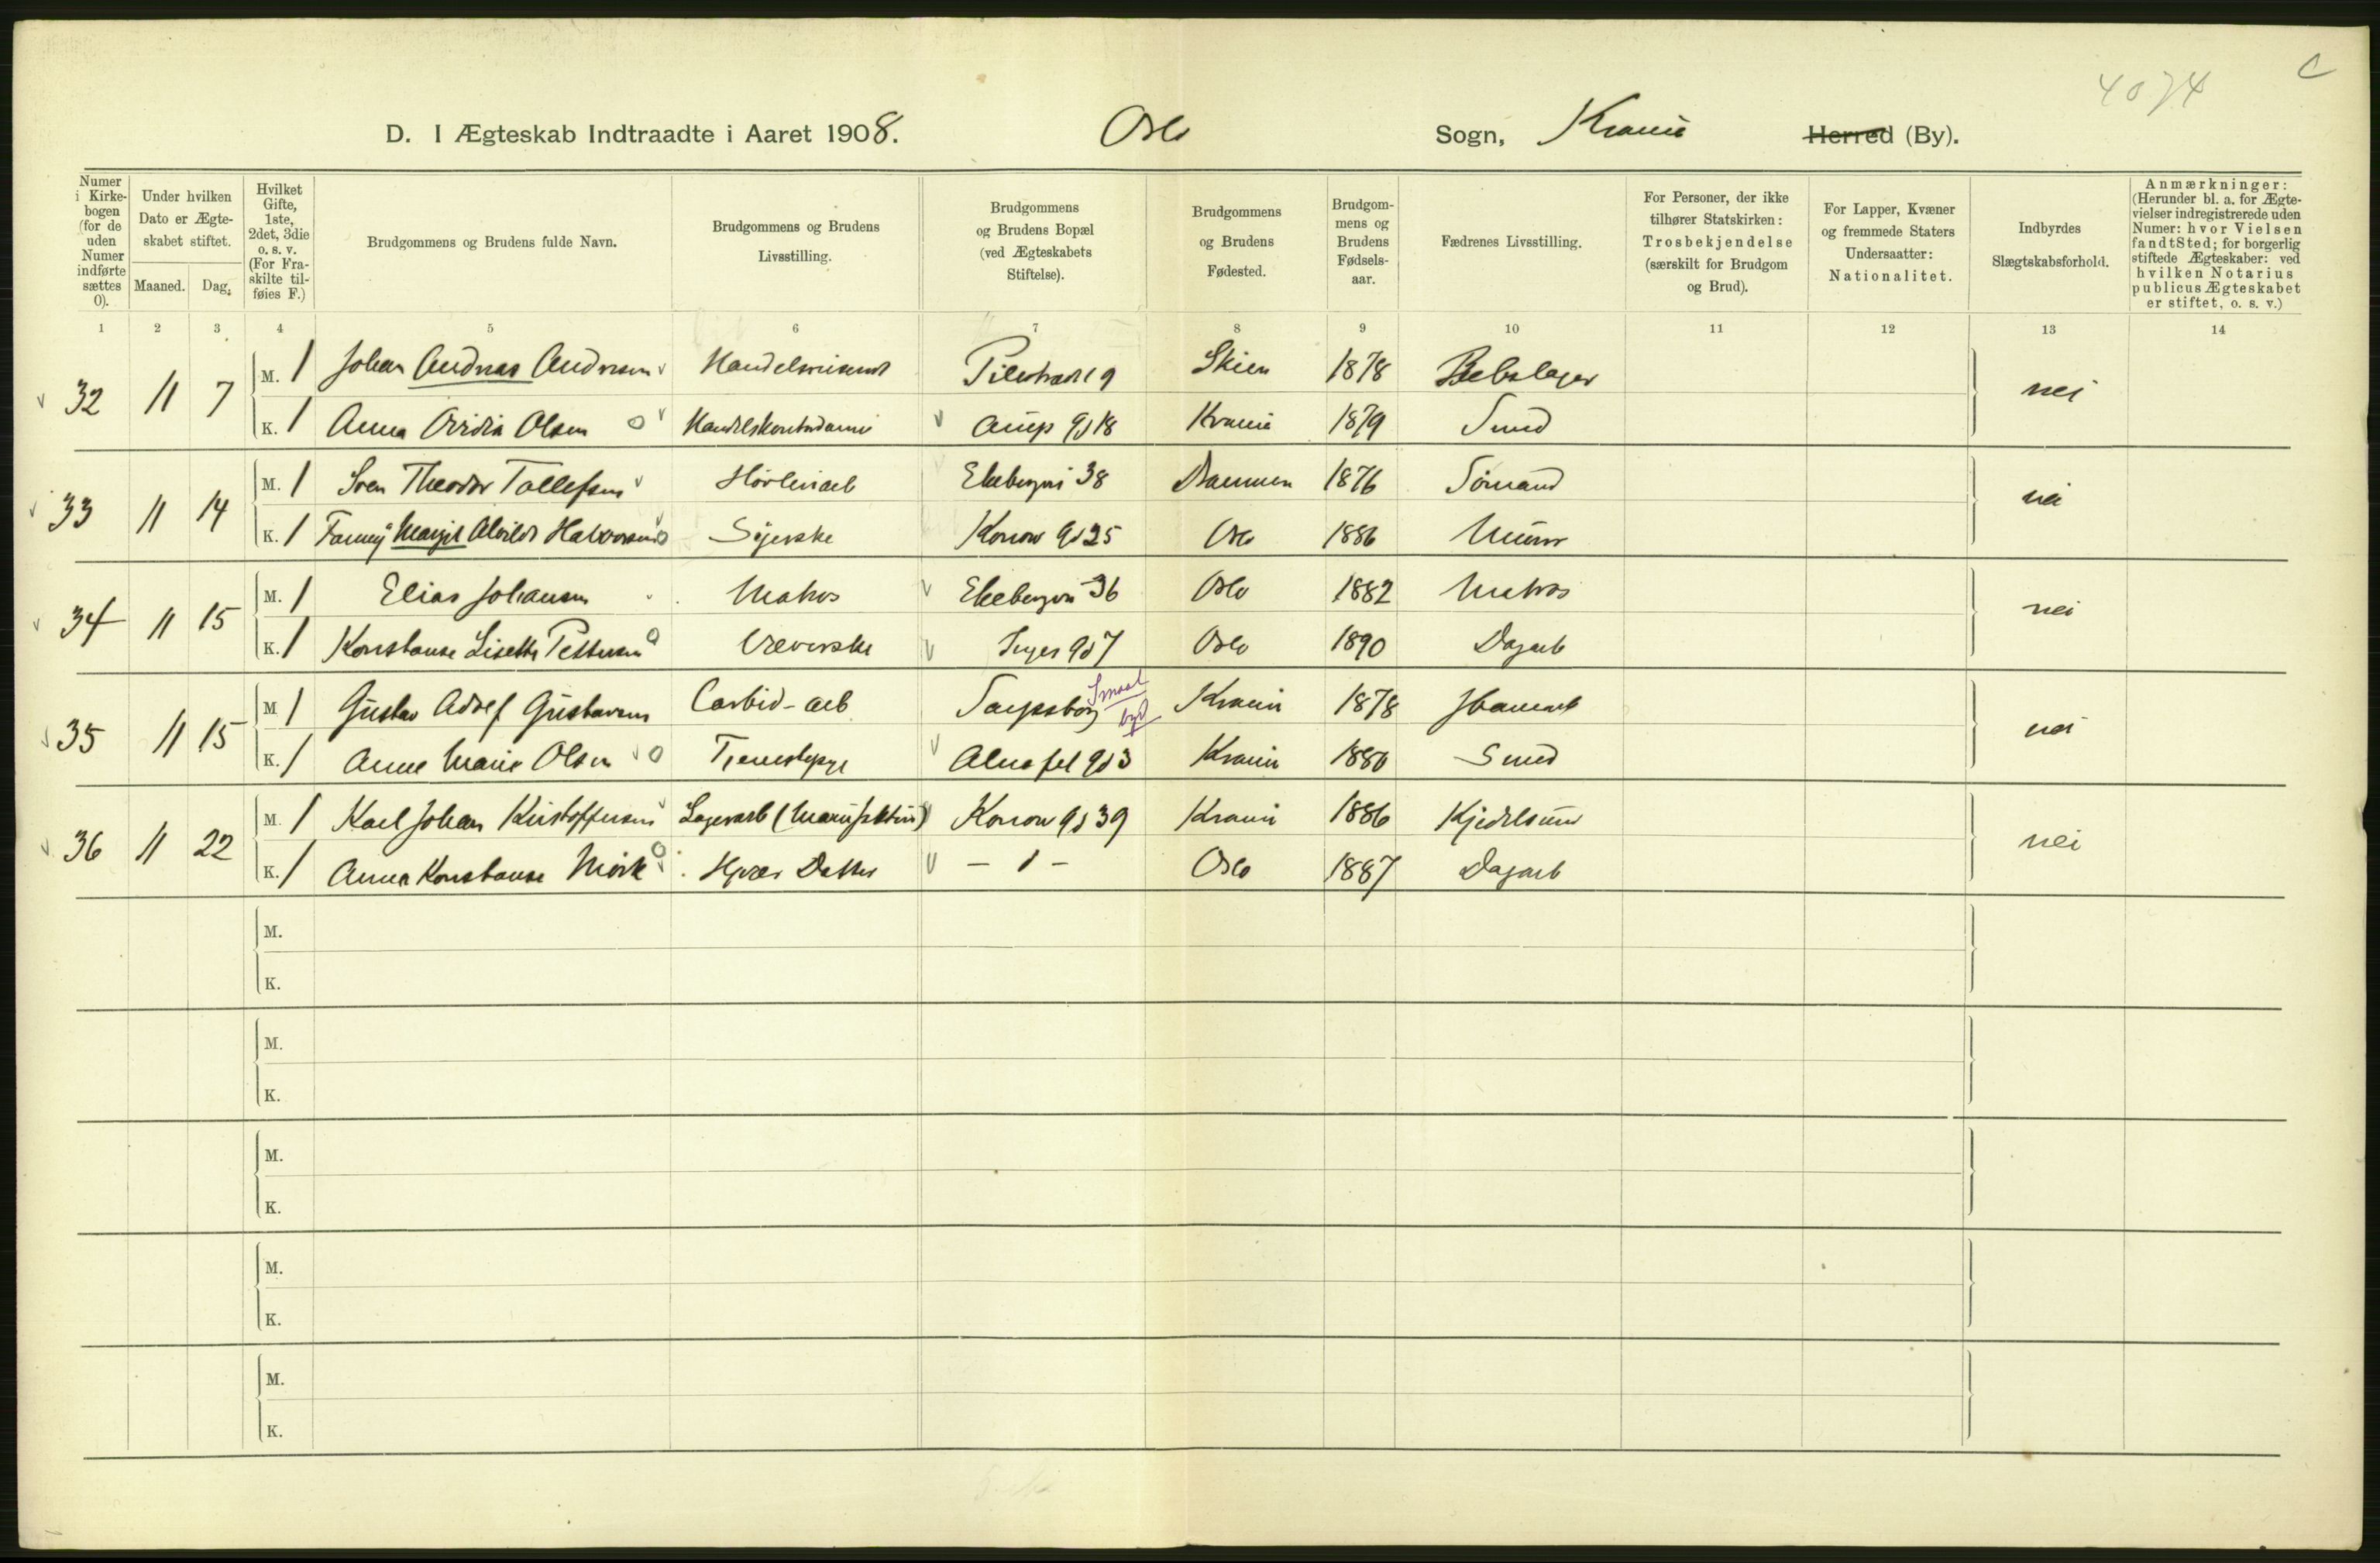 4074 C
D. I Ægteskab Indtraadte i Aaret 1908. Oslo Sogn, Krania Herred (By).
Numer i Kirke-bogen (for de uden Numer indførte sættes 0).
Under hvilken Dato er Ægte-skabet stiftet.
Maaned. Dag.
Hvilket Gifte, 1ste, 2det, 3die o. s. v. (For Fra-skilte til-føies F.)
Brudgommens og Brudens fulde Navn.
Brudgommens og Brudens Livsstilling.
Brudgommens og Brudens Bopæl (ved Ægteskabets Stiftelse).
Brudgommens og Brudens Fødested.
Brudgom-mens og Brudens Fødsels-aar.
Fædrenes Livsstilling.
For Personer, der ikke tilhører Statskirken: Trosbekjendelse (særskilt for Brudgom og Brud).
For Lapper, Kvæner og fremmede Staters Undersaatter: Nationalitet.
Indbyrdes Slægtskabsforhold.
Anmærkninger: (Herunder bl. a. for Ægte-vielser indregistrerede uden Numer: hvor Vielsen fandt Sted; for borgerlig stiftede Ægteskaber: ved hvilken Notarius publicus Ægteskabet er stiftet, o. s. v.)
1 2 3 4 5 6 7 8 9 10 11 12 13 14
32 11 7 M. 1 Johan Andreas Andresen Handelsreisende Pilestræde 19 Skien 1878 Rebslager nei
K. 1 Anna Olsen Handelskontordame 18 Krania 1879 Smed
33 11 14 M. 1 Sven Theodor Tollefsen Høvleriarb Ekebergvei 38 Drammen 1876 Sømand nei
K. 1 Fanny Margit Alvilde Halvorsen Syerske Konow gd 25 Oslo 1886 Murer
34 11 15 M. 1 Elias Johansen Matros Ekebergvei 36 Oslo 1882 Matros nei
K. 1 Konstanse Lisette Pettersen Væverske Inges gd 7 Oslo 1890 Dagarb
35 11 15 M 1 Gustav Adolf Gustavsen Carbid-arb Sarpsborg Smaal Krania 1878 nei
K. 1 Anne Marie Olsen Tjenestepige Alnafel gd 3 Krania 1880 Smed
36 11 22 M. 1 Karl Johan Kristoffersen Lagerarb (Manufaktur) Konow gd 39 Krania 1886 Kjedelsmed nei
K. 1 Anna Konstanse Mörk Hjvær Datter - " - Oslo 1887 Dagarb
M.
K.
M.
K.
M.
K.
M.
K.
M.
K.